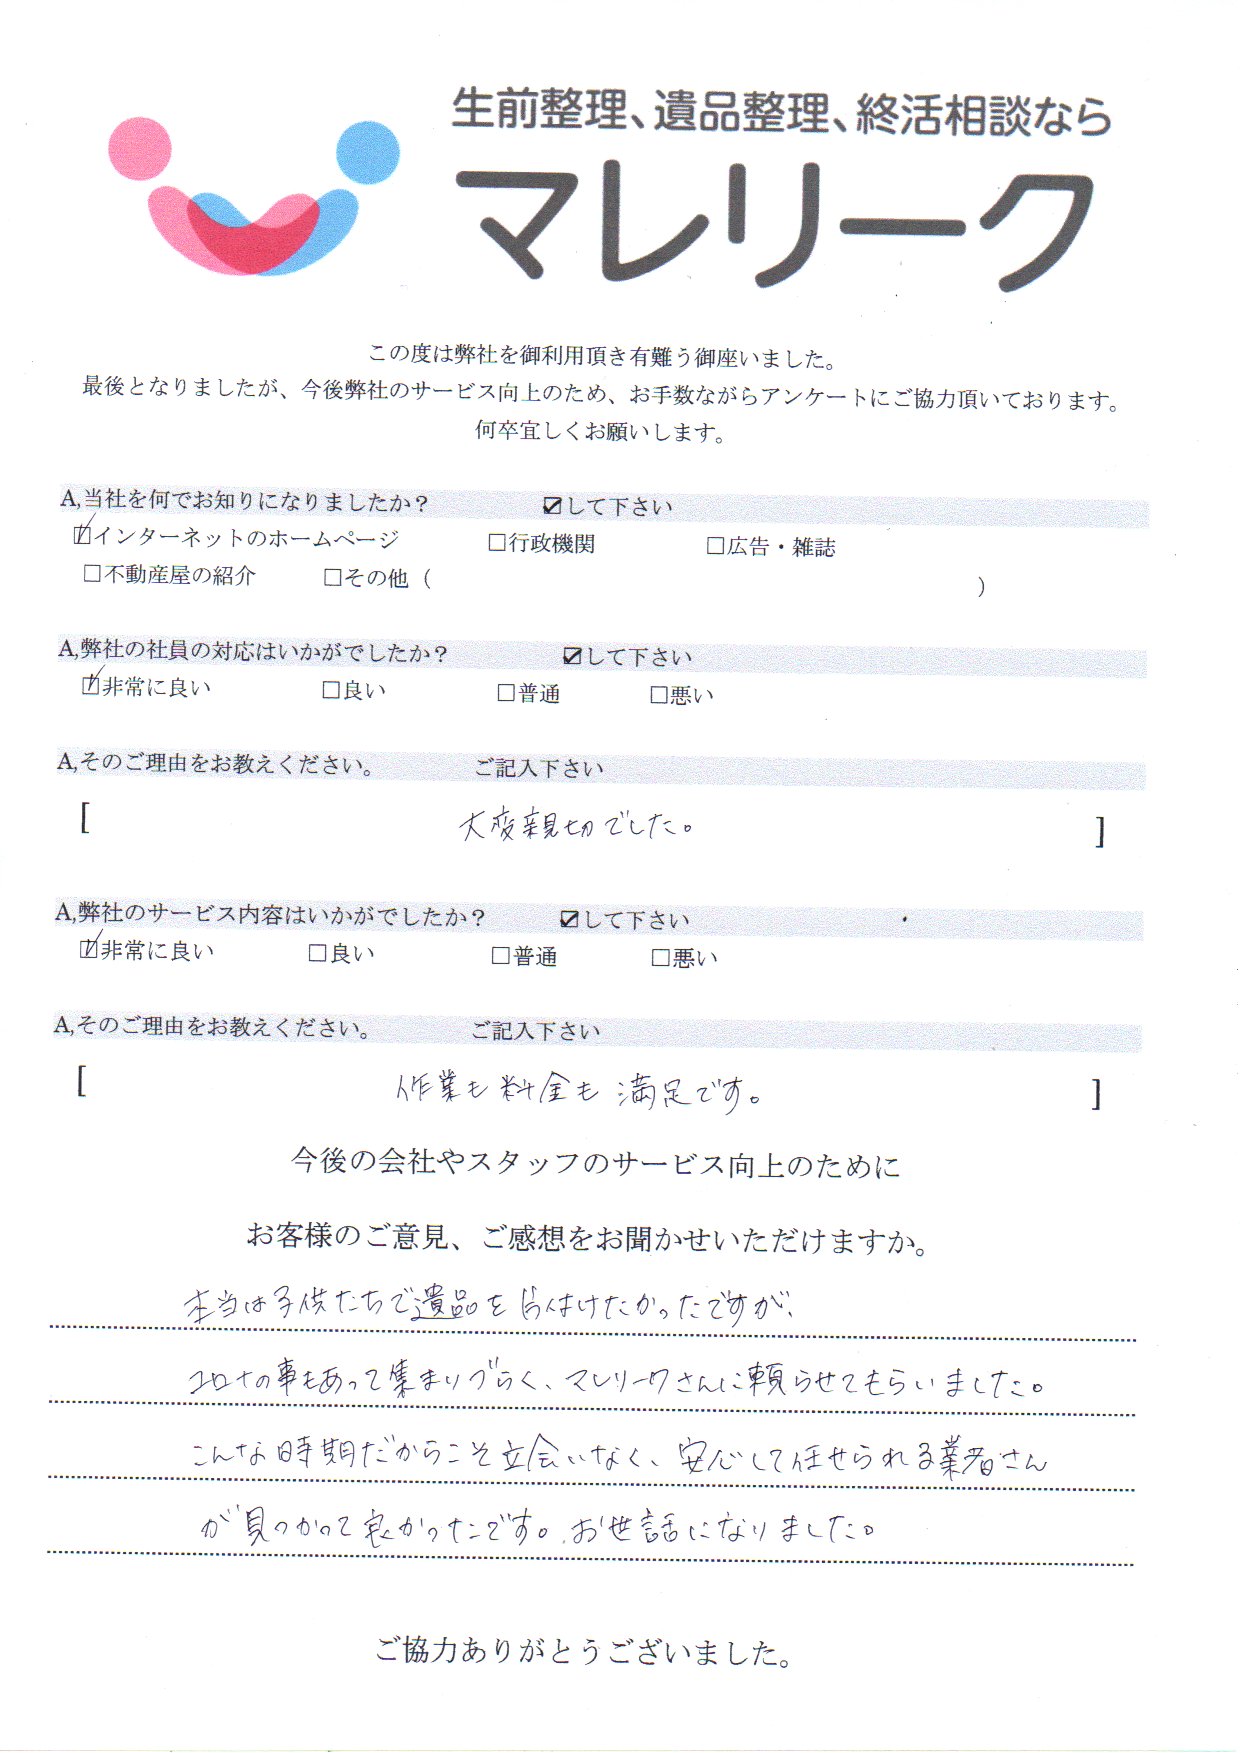 生前整理、遺品整理、終活相談なら
マレリーク
この度は弊社を御利用頂き有難う御座いました。
最後となりましたが、今後弊社のサービス向上のため、お手数ながらアンケートにご協力頂いております。
何卒宜しくお願いします。
A,当社を何でお知りになりましたか？ ☑して下さい
☑インターネットのホームページ □行政機関 □広告・雑誌
□不動産屋の紹介 □その他（ ）
A,弊社の社員の対応はいかがでしたか？ ☑して下さい
☑非常に良い □良い □普通 □悪い
A,そのご理由をお教えください。 ご記入下さい
[ 大変親切でした。 ]
A,弊社のサービス内容はいかがでしたか？ ☑して下さい
☑非常に良い □良い □普通 □悪い
A,そのご理由をお教えください。 ご記入下さい
[ 作業も料金も満足です。 ]
今後の会社やスタッフのサービス向上のために
お客様のご意見、ご感想をお聞かせいただけますか。
本当は子供たちで遺品を片付けたかったですが、
コロナの事もあって集まりづらく、マレリークさんに頼らせてもらいました。
こんな時期だからこそ立会いなく、安心して任せられる業者さん
が見つかって良かったです。お世話になりました。
ご協力ありがとうございました。